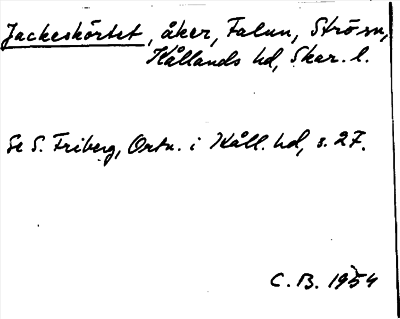 Jackeskörtet, åker, Falun, Strö sn,
Kållands hd, Skar. l.
Se S. Friberg, Ortn. i Kåll. hd, s. 27.
C. B. 1954